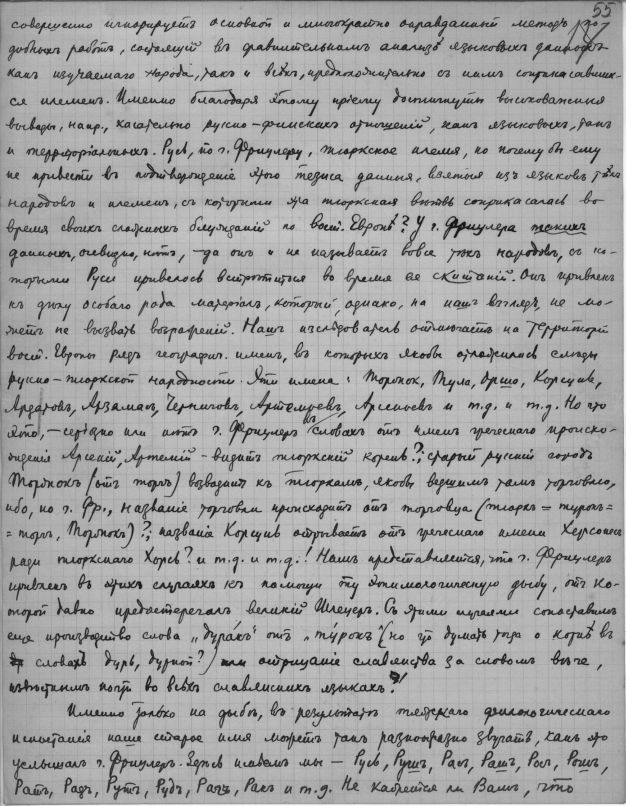 55
совершенно игнорируетъ основной и многократно оправданный методъ по-
добныхъ работъ, состоящій въ сравнительномъ анализѣ языковыхъ данныхъ
какъ изучаемаго народа, такъ и всѣхъ, предположительно съ нимъ соприкасавших-
ся племенъ. Именно благодаря этому пріему достигнуты высоковажные
выводы, напр., касательно русско-финскихъ отношеній, какъ языковыхъ, такъ
и территоріальныхъ. Русь, по г. Фрицлеру, тюркское племя, но почему бы ему
не привести въ подтвержденіе этого тезиса данныя, взятыя изъ языковъ тѣхъ
народовъ и племенъ, съ которыми эта тюркская вѣтвь соприкасалась во
время своихъ сложныхъ блужданій по вост. Европѣ? У г. Фрицлера такихъ
данныхъ, очевидно, нѣтъ, – да онъ и не называетъ вовсе тѣхъ народовъ, съ ко-
торыми Руси привелось встрѣтиться во время ея скитаній. Онъ привлекъ
къ дѣлу особаго рода матеріалъ, который, однако, на нашъ взглядъ, не мо-
жетъ не вызвать возраженій. Нашъ изслѣдователь отмѣчаетъ на территоріи
вост. Европы рядъ географич. именъ, въ которыхъ якобы отложились слѣды
русско-тюркской народности. Эти имена: Торжокъ, Тула, Орша, Корсунь,
Ардатовъ, Арзамасъ, Черниговъ, Артемьевъ, Арсеньевъ и т.д. и т.д. Но что
это, – серьезно или нѣтъ г. Фрицлеръ въ словахъ отъ именъ греческаго происхо-
жденія Арсеній, Артемій – видитъ тюркскій корень?; старый русскій городъ
Торжокъ (отъ торгъ) возводитъ къ тюркамъ, якобы ведшимъ тамъ торговлю,
ибо, по г. Фр., названіе торговли происходитъ отъ торговца (тюркъ = турокъ =
= торгъ, Торжокъ)?; названіе Корсунь отрываетъ отъ греческаго имени Херсонесъ
ради тюркскаго Хорсъ? и т.д. и т.д.! Намъ представляется, что г. Фрицлеръ
привлекъ въ этихъ случаяхъ къ помощи ту этимологическую дыбу, отъ ко-
торой давно предостерегалъ великій Шлецеръ. Съ этими случаями сопоставимъ
еще производство слова „дуракъ“ отъ „турокъ“ (но что думать тогда о корнѣ въ
словахъ дурь, дурной?) или отрицаніе славянства за словомъ вѣче,
извѣстнымъ почти во всѣхъ славянскихъ языкахъ!
Именно только на дыбѣ, въ результатѣ тяжкаго филологическаго
испытанія наше старое имя можетъ такъ разнообразно звучать, какъ это
услышалъ г. Фрицлеръ. Здѣсь имѣемъ мы – Русь, Рушъ, Расъ, Рашъ, Росъ, Рошъ,
Ратъ, Радъ, Рутъ, Рудъ, Рачъ, Ракъ и т.д. Не кажется ли Вамъ, что